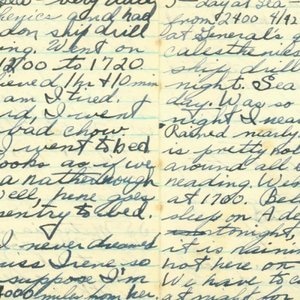 very dull
had
don ship drill
ng. Went on
1200 to 1720
ieved 1 hr + 10 min
am I tired. I
rd, I went
bad chow.
I went to bed
ooks as if we
a rather rough
Well, here goes
sentry to bed.
I never dreamed
miss Irene so
suppose I'm
4000 miles from her
day at Sea
from 2400
at General's
calesthenics
ship drill
night. Sea
day. Was so
night I near
Rained nearly
is pretty hot
around all
reading. Went
at 1700.
sleep on A de
tonight,
it is raining
hot here on
We have to